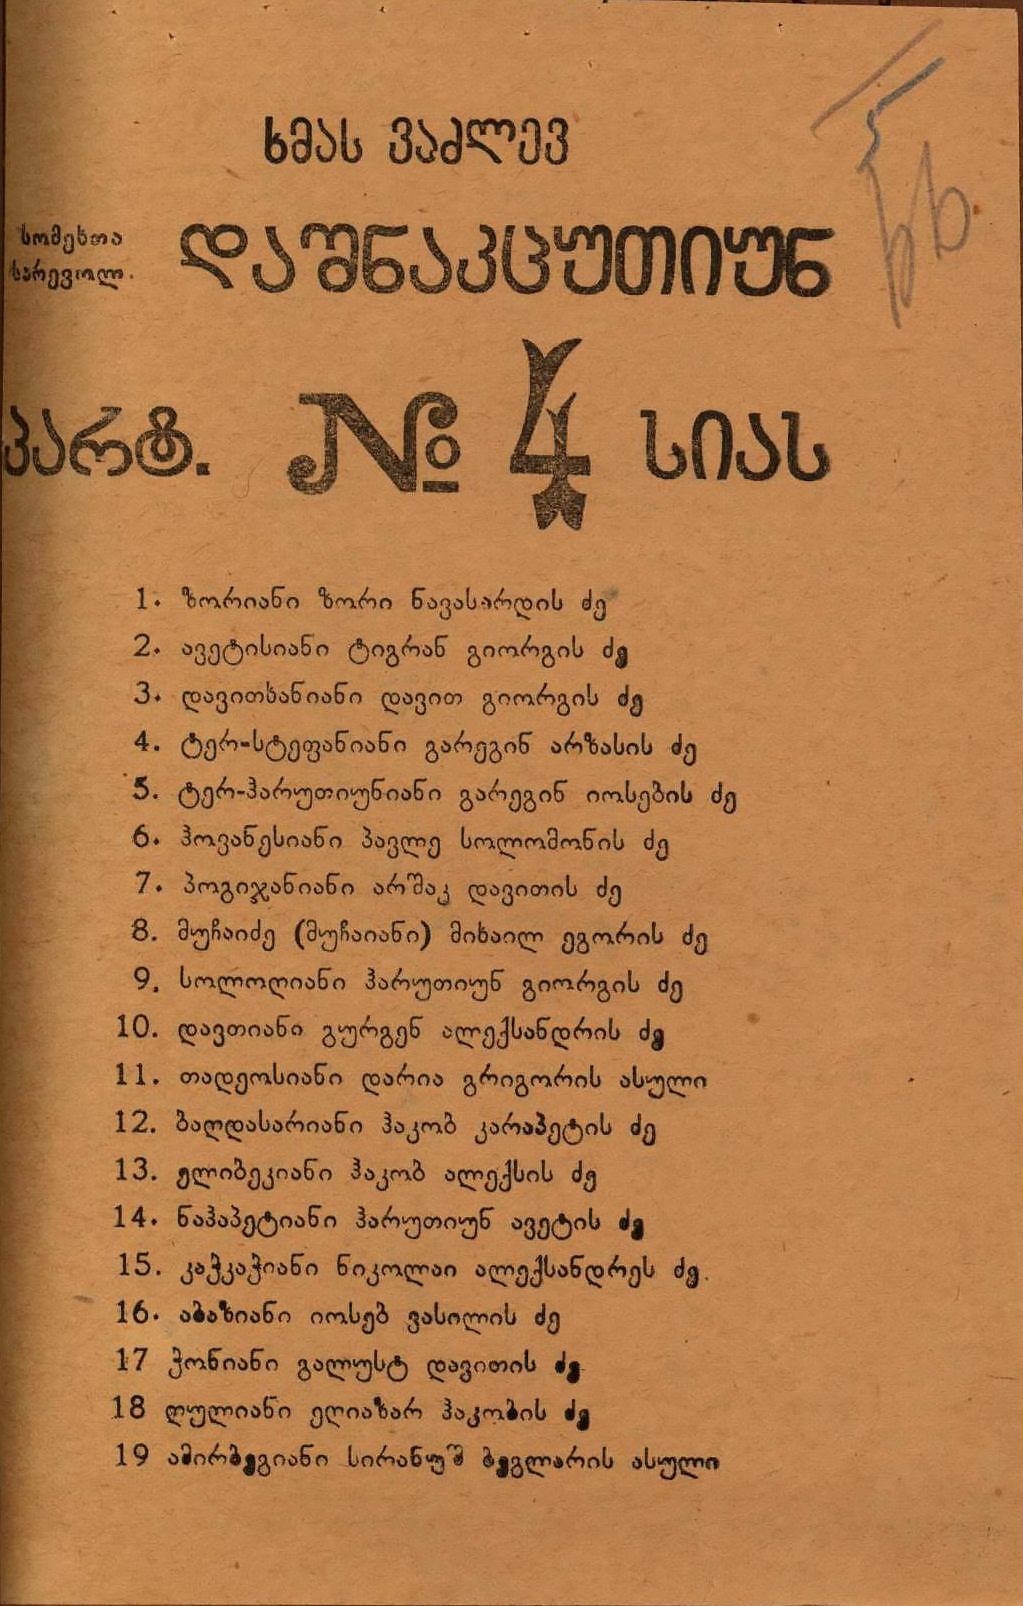 ხმას ვაძლევ
სომეხთა
სარევოლ.
დაშნაკცუთიუნ
პარტ. № 4 სიას
1. ზორიანი ზორი ნავასარდის ძე
2. ავეტისიანი ტიგრან გიორგის ძე
3. დავითხანიანი დავით გიორგის ძე
4. ტერ-სტეფანიანი გარეგინ არზასის ძე
5. ტერ-ჰარუთიუნიანი გარეგინ იოსების ძე
6. ჰოვანესიანი პავლე სოლომონის ძე
7. პოგიჯანიანი არშაკ დავითის ძე
8. მუჩაიძე (მუჩაიანი) მიხაილ ეგორის ძე
9. სოლოღიანი ჰარუთიუნ გიორგის ძე
10. დავთიანი გურგენ ალექსანდრის ძე
11. თადეოსიანი დარია გრიგორის ასული
12. ბაღდასარიანი ჰაკობ კარაპეტის ძე
13. ელიბეკიანი ჰაკობ ალექსის ძე
14. ნაჰაპეტიანი ჰარუთიუნ ავეტის ძე
15. კაჭკაჭიანი ნიკოლაი ალექსანდრეს ძე.
16. აბაზიანი იოსებ ვასილის ძე
17 ჭონიანი გალუსტ დავითის ძე
18 ღულიანი ელიაზარ ჰაკობის ძე
19 ამირბეგიანი სირანუშ ბეგლარის ასული